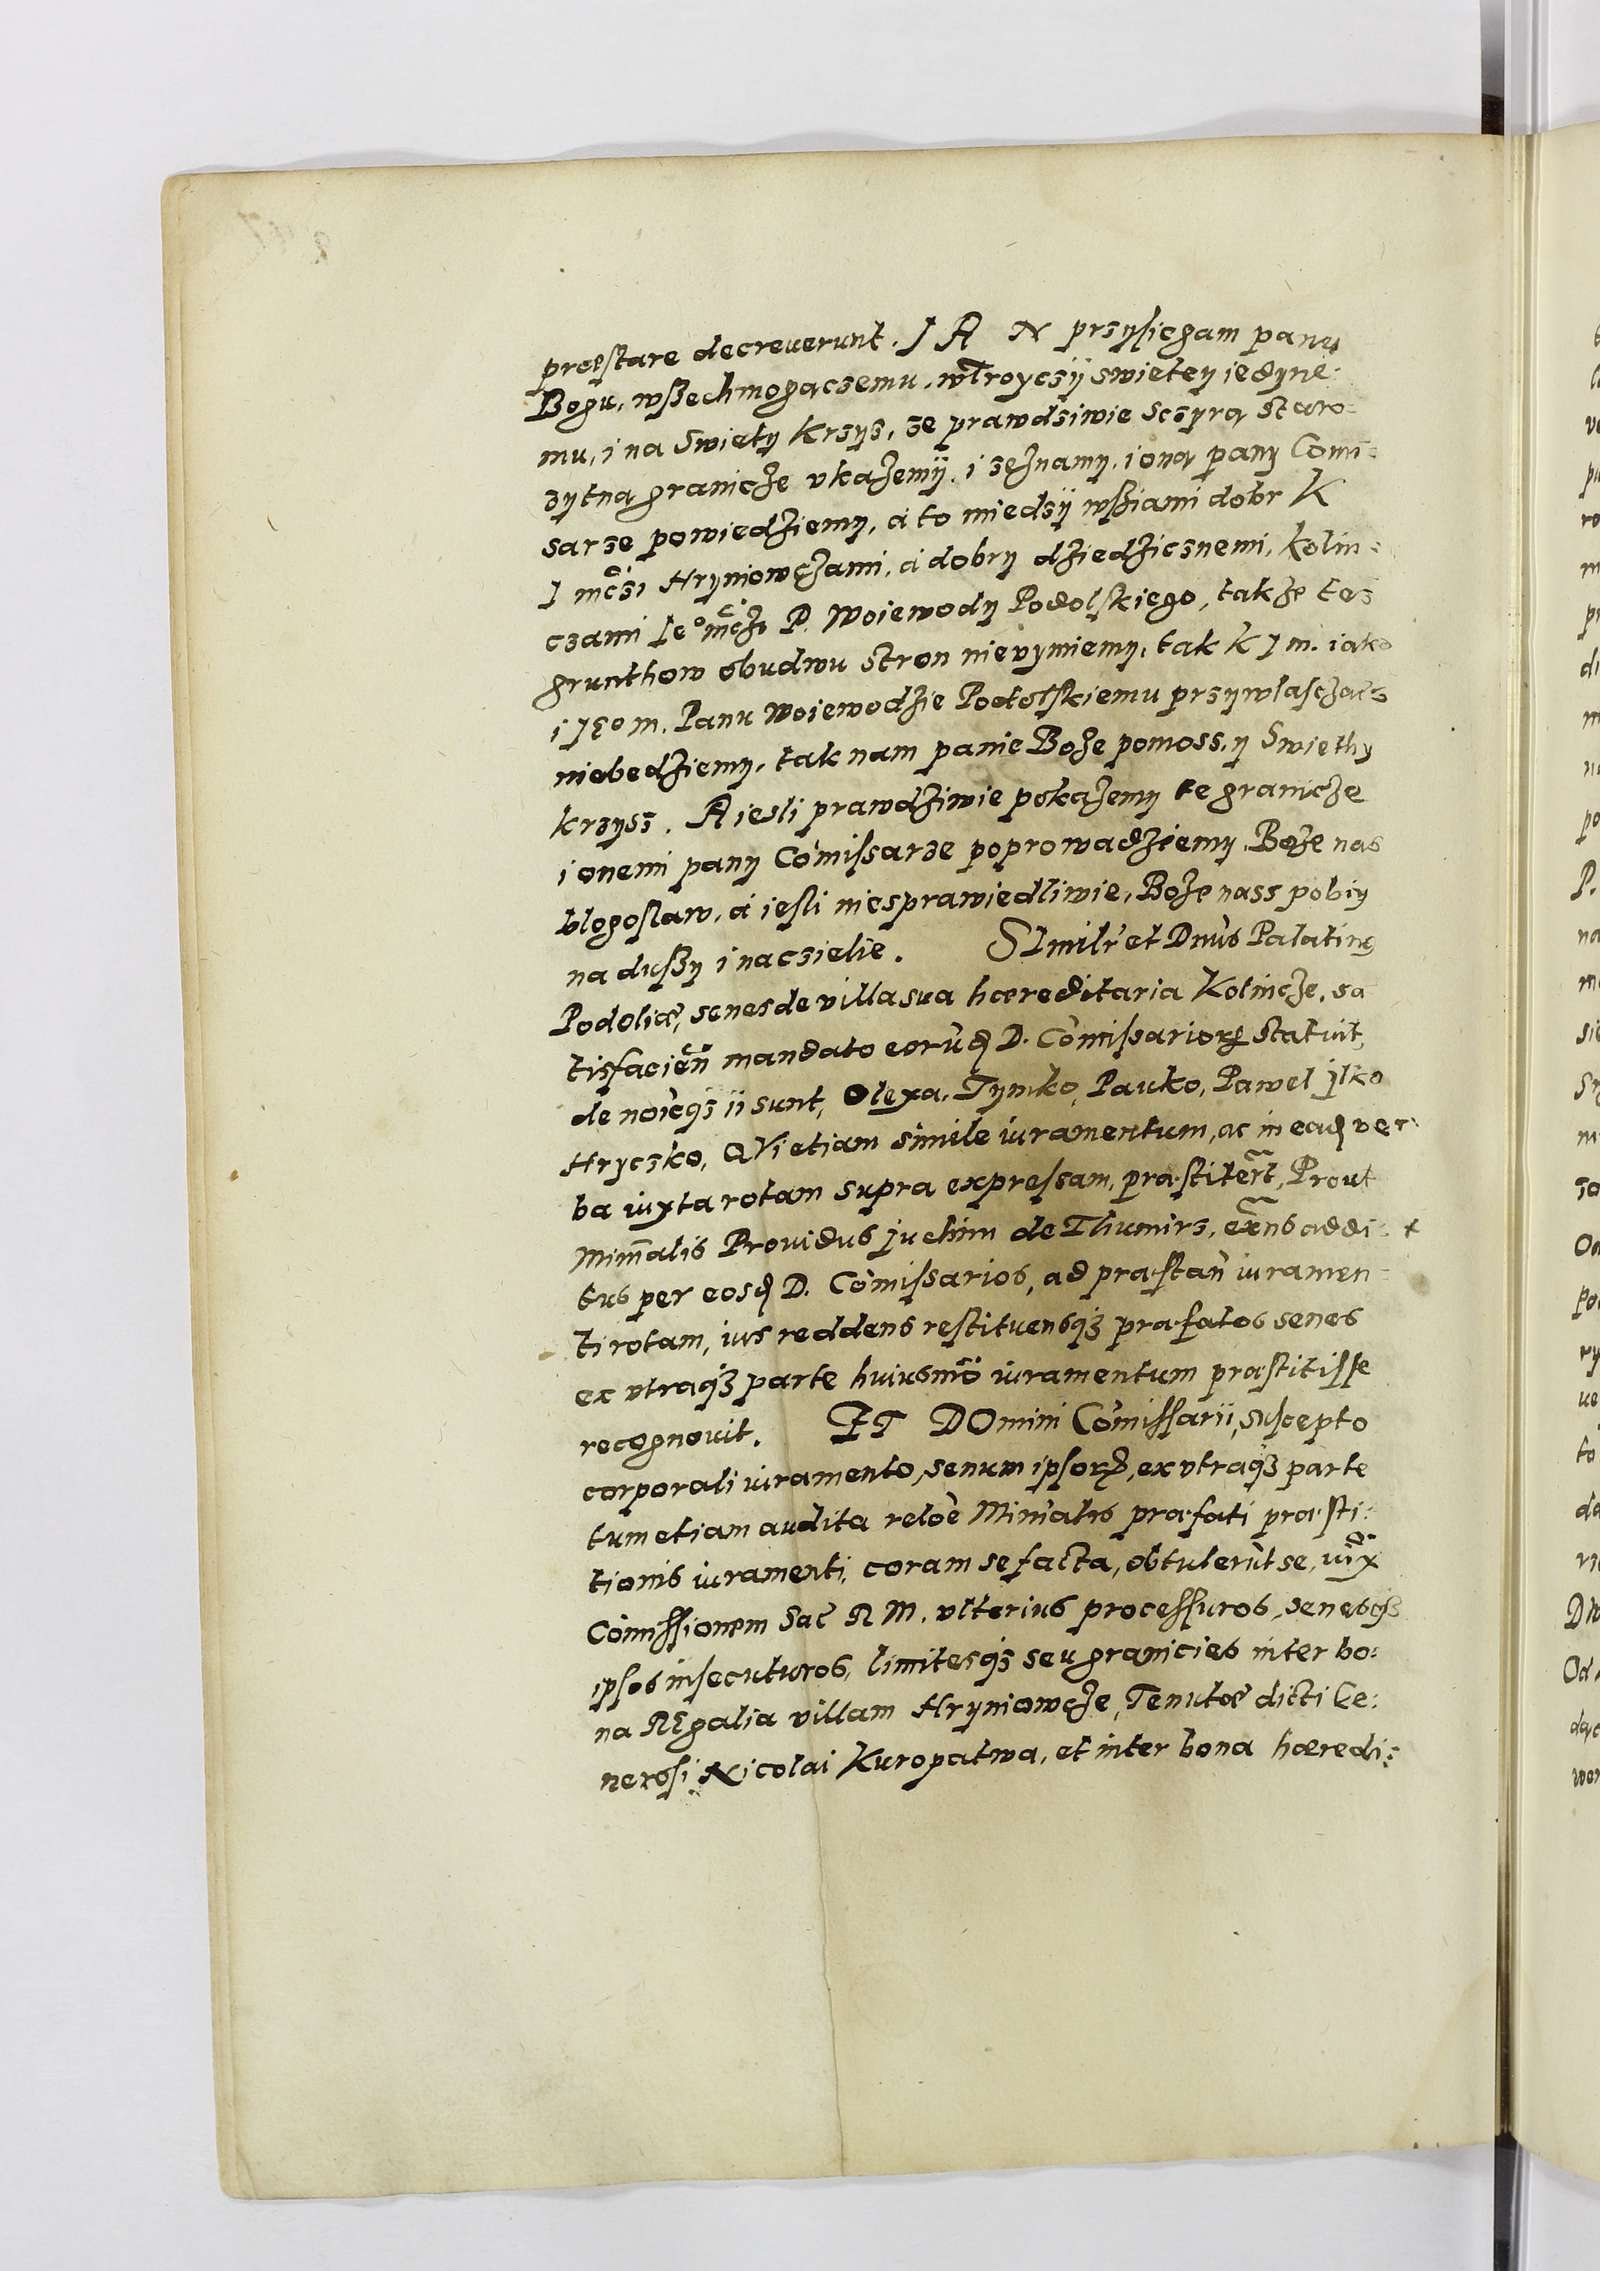 præstare decreuerunt. JA N przysiegam panu
Bogu, wßechmogączemu, wTroyczÿ swietey iedyne-
mu, i na Swiety krzyz, ze prawdziwie sczyrą staro-
zytną granicze vkazemÿ, i zeznamy, i oną pany Comi-
sarze powiedziemy, a to miedzÿ wßiami dobr K
J mczi Hryniowczami, a dobry dziedzicznemi, kolin-
czami Jeo mczi P. Woiewody Podolskiego, takze tez
grunthow obudwu stron nievymiemy, tak k J m. iako
i JEo m. Panu woiewodzie Podolskiemu przywlasczacz
niebedziemy, tak nam panie Boze pomoss, y Swiethy
krzysz. A iesli prawdziwie pokazemy te granicze
i onemi pany Comissarze poprowadziemy, Boze nas
blogoslaw, a iesli niesprawiedliwie, Boze nass pobiy
na dußy i na czielie. SImilr et Dnus Palatinꝰ
Podoliæ, senes de villa sua hæreditaria Kolincze, sa
tisfacien mandato eorundꝫ D. Comissarioꝝ statuit,
de noieqꝫ ii sunt, Olexa, Tymko, Pauko, Pawel jlko
Hryczko, QVi etiam simile iuramentum, ac in eadꝫ ver-
ba iuxta rotam supra expressam, præstitert, Prout
Minalis Prouidus juchim de Thumirz, exns addi- x
tus per eosdꝫ D. Comissarios, ad præstan iuramen-
ti rotam, ius reddens restituensqꝫ præfatos senes
ex vtraqꝫ parte huiusmoi iuramentum præstitisse
recognouit. ET DOmini Comissarii, suscepto
corporali iuramento, senum ipsoꝝ, ex vtraqꝫ parte
tum etiam audita reloe Minialis præfati præsti-
tionis iuramenti, coram se facta, obtulerut se, iux
Comissionem Sac R M. vlterius processuros, senesqꝫ
ipsos insecuturos, limitesqꝫ seu granicies inter bo-
na REgalia villam Hryniowcze, Tenutæ dicti Ge-
nerosi Nicolai Kuropatwa, et inter bona hæredi-